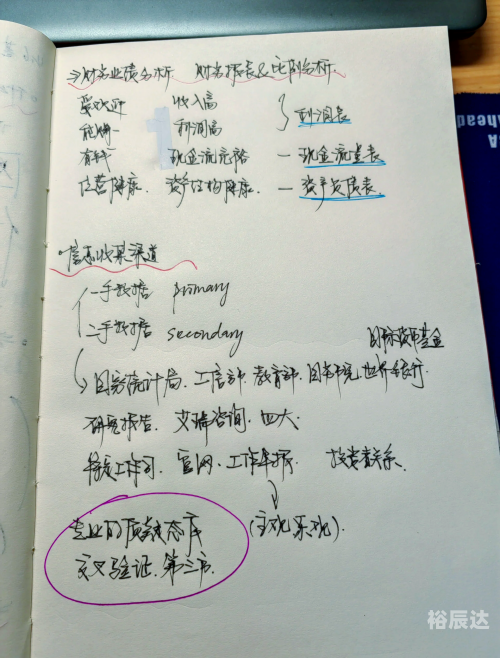 →财务业绩分析 财务报表&比例分析
受欢迎 收入高
能赚一 利润高 } 利润表
有钱 现金流充裕 — 现金流量表
运营健康. 资产结构健康. — 资产负债表
·信息收集渠道
一手数据 primary
二手数据 secondary
国际货币基金
→国家统计局.工信部.教育部.图书馆.世界银行
研究报告. 艾瑞咨询. 四大
官网. 投资者联系.
专业的质疑态度 (主观 乐观).
交叉验证.第三方.
裕辰达
ahead